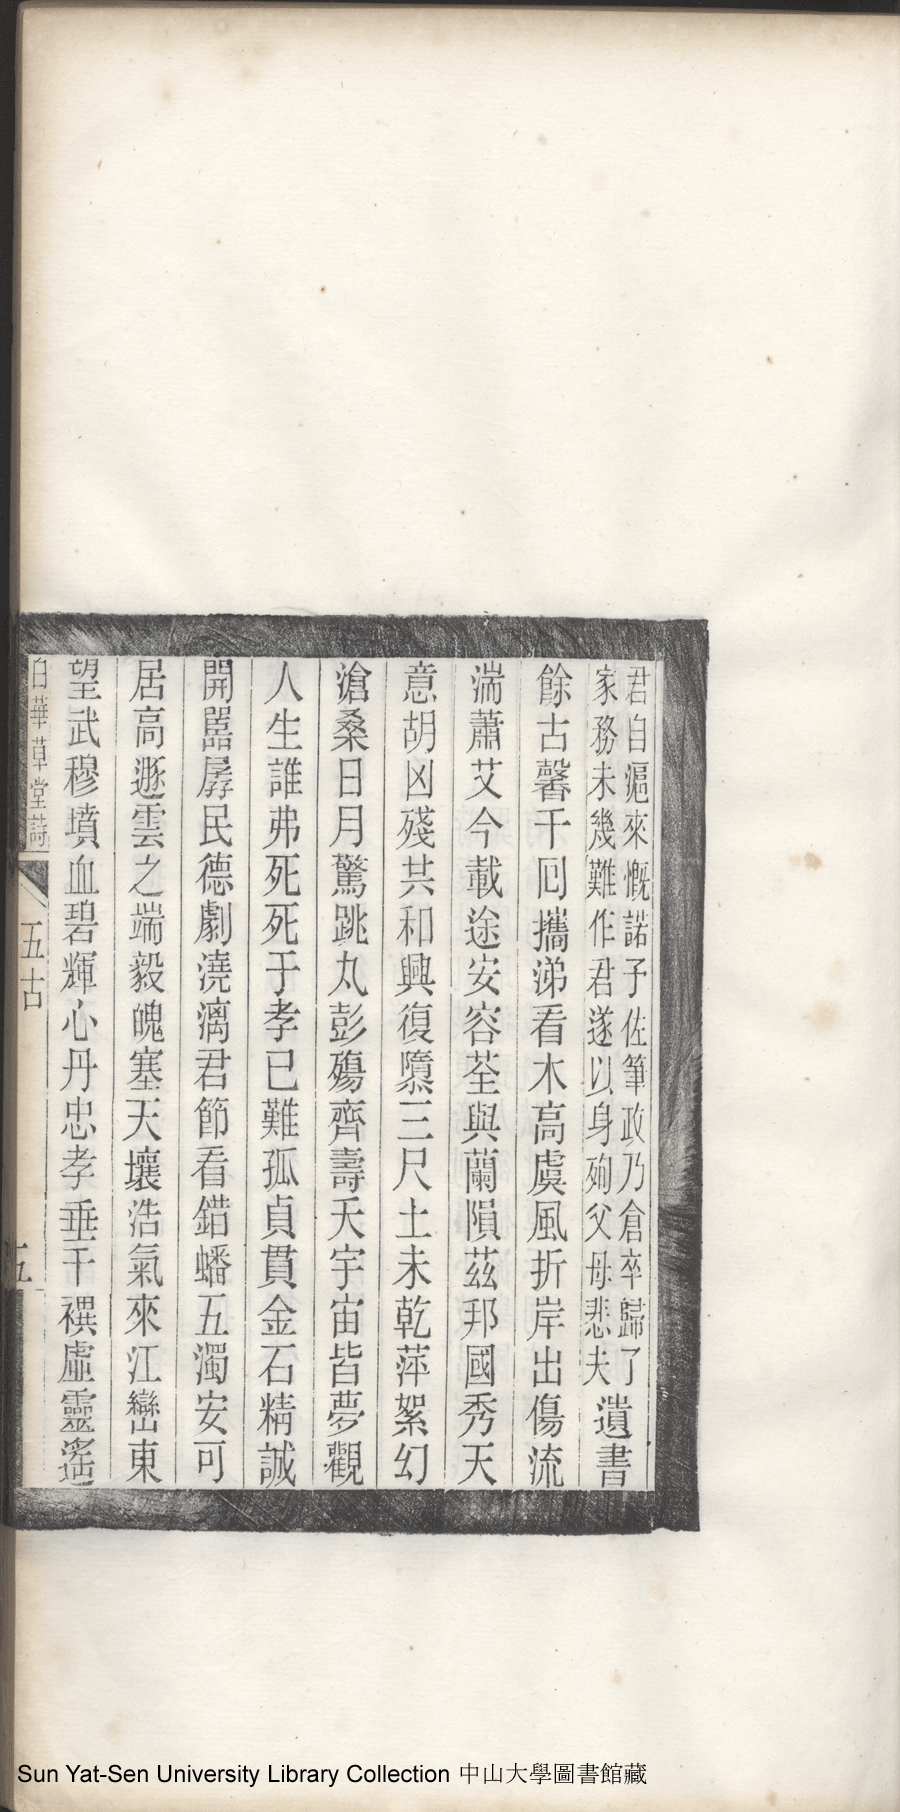 君自滬來慨諾予佐筆政乃倉卒歸了
家務未幾難作君遂以身殉父母悲夫
遺書
餘古馨千回攜涕看木高虞風折岸出傷流
湍蕭艾今載途安容荃與蘭隕茲邦國秀天
意胡凶殘共和興復隳三尺土未乾萍絮幻
滄桑日月驚跳丸彭殤齊壽夭宇宙皆夢觀
人生誰弗死死于孝已難孤貞貫金石精誠
開嚚孱民德劇澆漓君節看錯蟠五濁安可
居高遯雲之端毅魄塞天壤浩氣來江巒東
望武穆墳血碧輝心丹忠孝垂千禩虛靈遙
白華草堂詩
五古
五
Sun Yat-Sen University Library Collection 中山大學圖書館藏